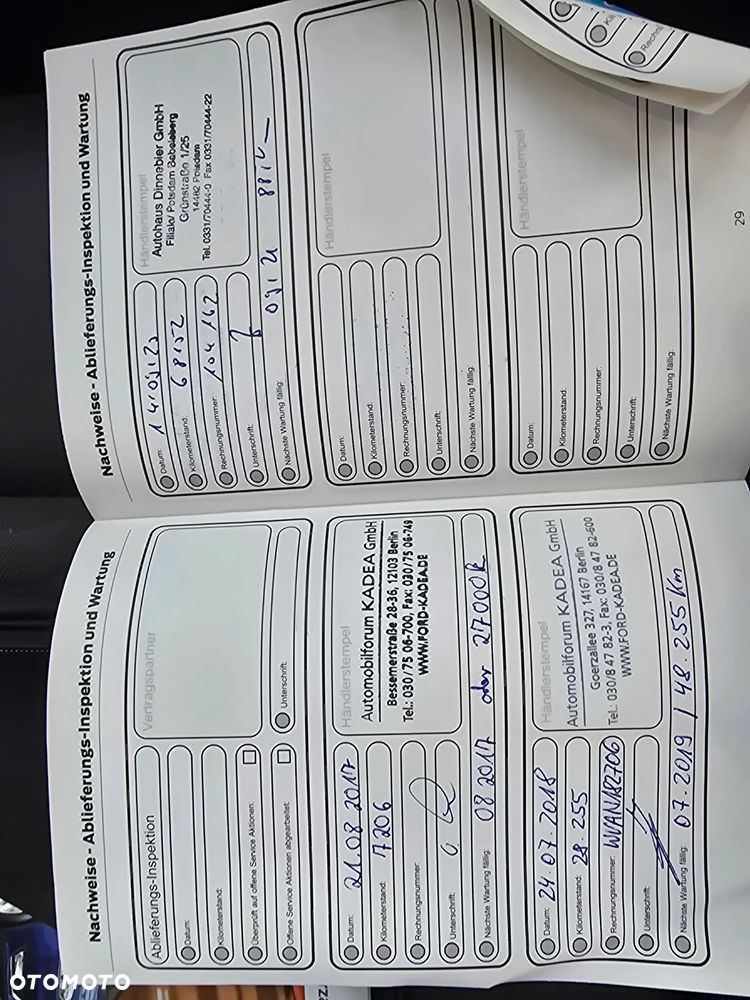 Nachweise - Ablieferungs-Inspektion und Wartung
Ablieferungs-Inspektion
Datum:
Kilometerstand:
Überprüft auf offene Service Aktionen:
Offene Service Aktionen abgearbeitet:
Vertragspartner
Unterschrift:
Datum: 21.08.2017
Kilometerstand: 7206
Rechnungsnummer:
Unterschrift:
Nächste Wartung fällig: 08 2017 oder 27000k
Händlerstempel
Automobilforum KADEA GmbH
Bessemerstraße 28-36, 12103 Berlin
Tel.: 030/75 06-700, Fax: 030/75 06-749
WWW.FORD-KADEA.DE
Datum: 24.07.2018
Kilometerstand: 28.255
Rechnungsnummer: WVANA82706
Unterschrift:
Nächste Wartung fällig: 07.2019 / 48.255 Km
Händlerstempel
Automobilforum KADEA GmbH
Goerzallee 327, 14167 Berlin
Tel.: 030/8 47 82-3, Fax: 030/8 47 82-600
WWW.FORD-KADEA.DE
Nachweise - Ablieferungs-Inspektion und Wartung
Datum: 14/09/20
Kilometerstand: 68152
Rechnungsnummer: 104 162
Unterschrift:
Nächste Wartung fällig: 09/21
Händlerstempel
Autohaus Dinnebier GmbH
Filiale/ Potsdam Babelsberg
Grünstraße 1/25
14482 Potsdam
Tel. 0331/70444-0 Fax 0331/70444-22
Datum:
Kilometerstand:
Rechnungsnummer:
Unterschrift:
Nächste Wartung fällig:
Händlerstempel
Datum:
Kilometerstand:
Rechnungsnummer:
Unterschrift:
Nächste Wartung fällig:
Händlerstempel
29
OTOMOTO